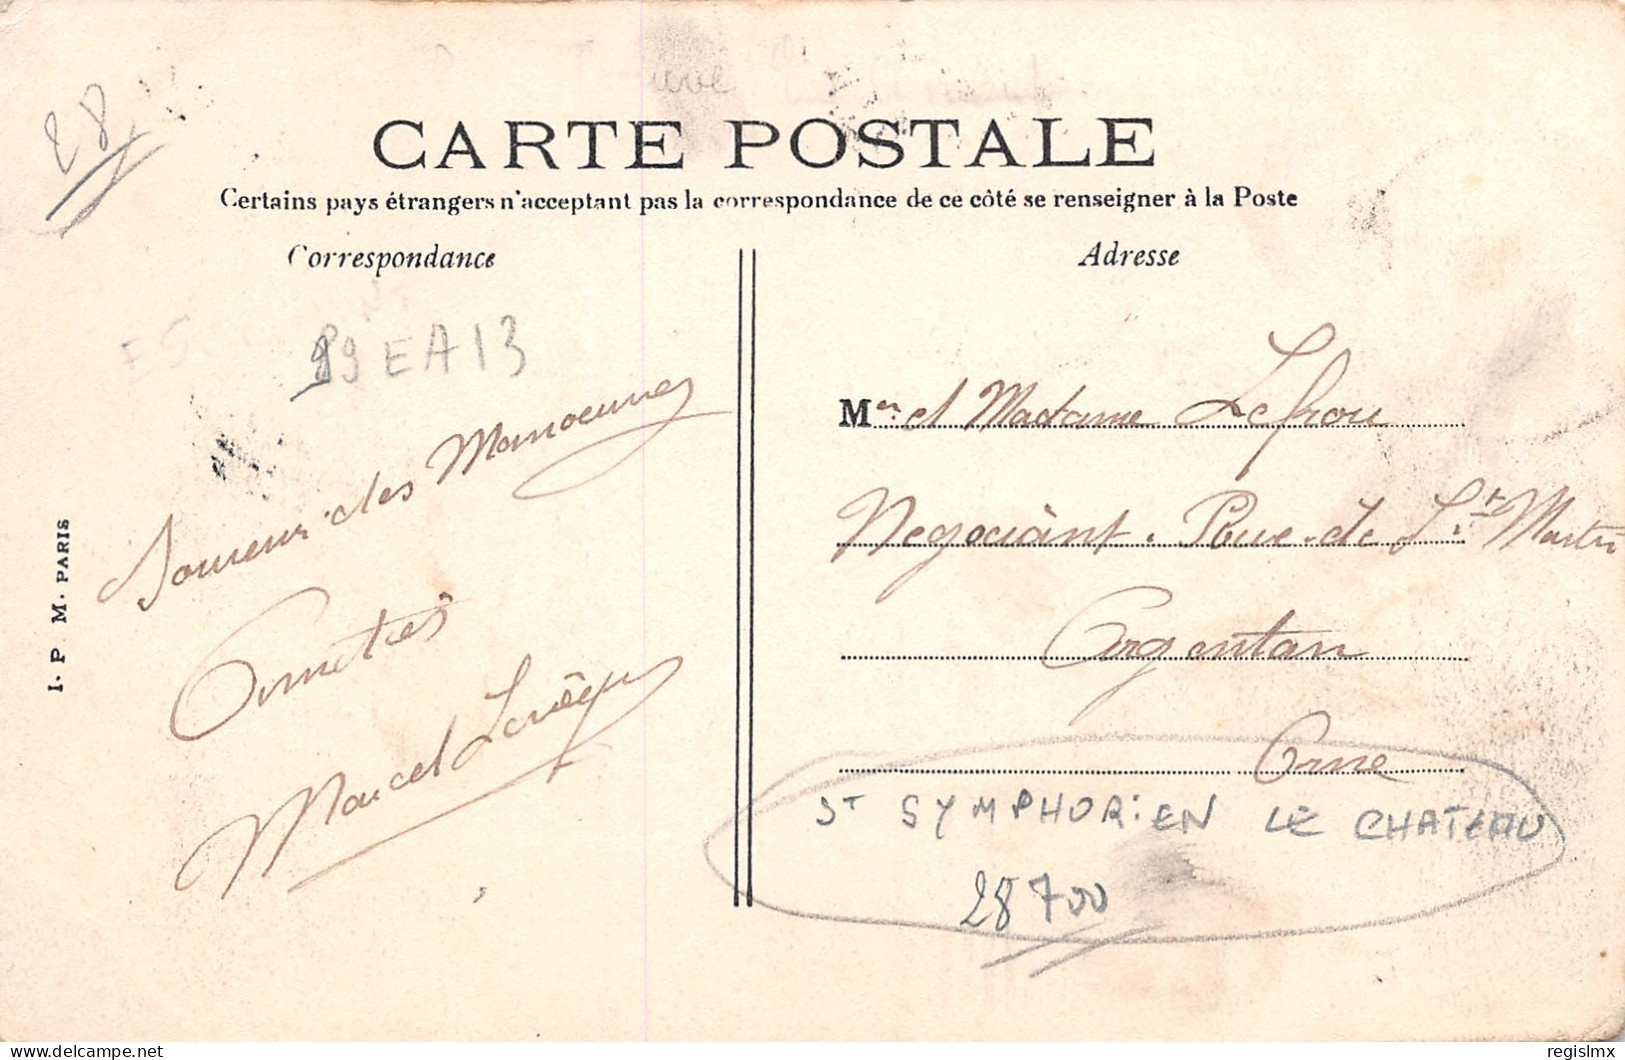 28
CARTE POSTALE
Certains pays étrangers n'acceptant pas la correspondance de ce côté se renseigner à la Poste
Correspondance
Adresse
89EA13
Souvenir des Manoeuvres
Amitiés
Marcel Levêque
I. P. M. PARIS
Mr et Madame Lefrou
Negociant. Rue de St Martin
Argentan
Orne
ST SYMPHORIEN LE CHATEAU
28700
regislmx